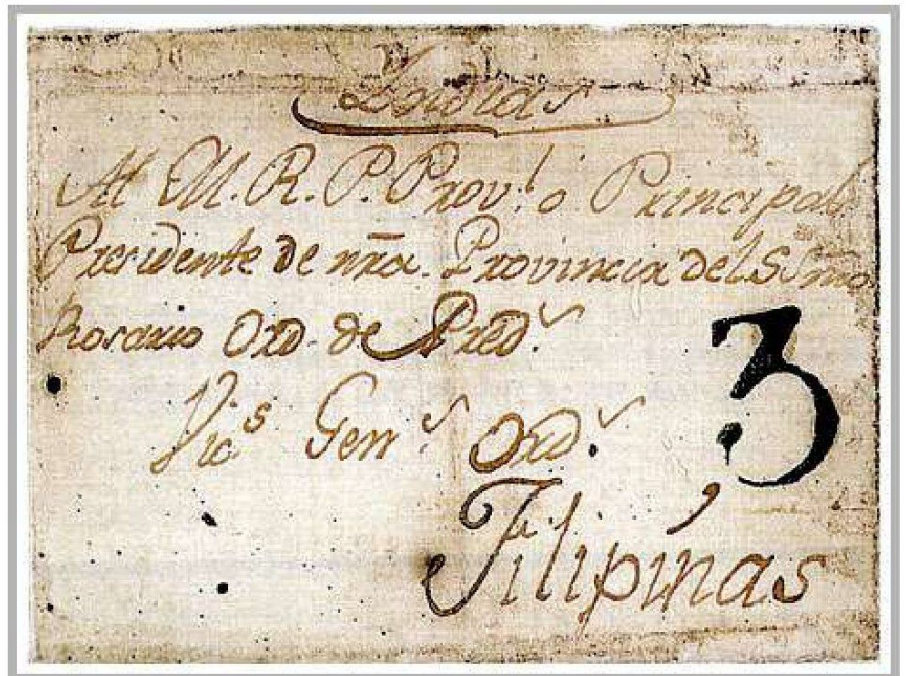 Yndias
Al M. R. P. Prov.l o Principal
Presidente de nra. Provincia del SSmo
Rosario Ord. de Pred.s
Vic.s Gen.s Ord.s
3
Filipinas